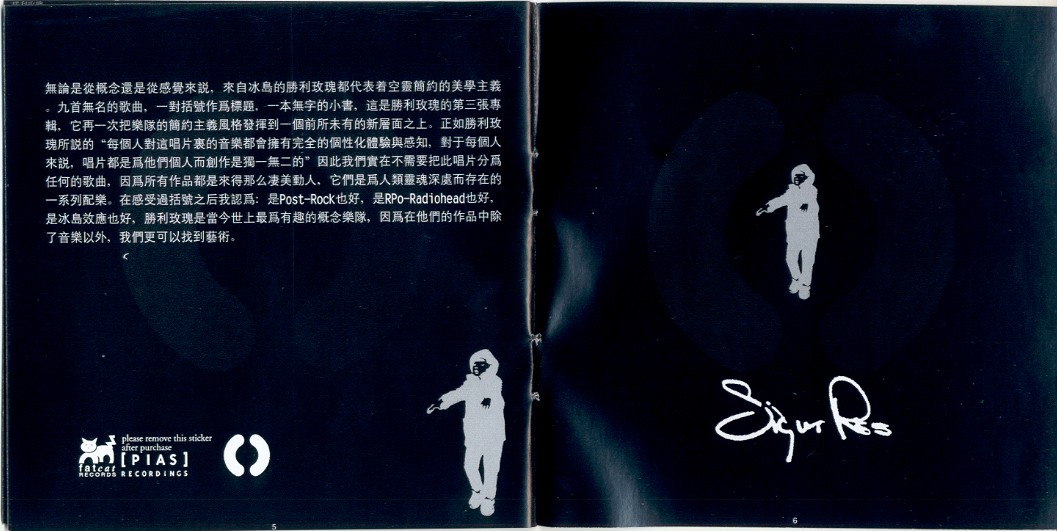 無論是從概念還是從感覺來説，來自冰島的勝利玫瑰都代表着空靈簡約的美學主義
。九首無名的歌曲，一對括號作爲標題，一本無字的小書，這是勝利玫瑰的第三張專
輯，它再一次把樂隊的簡約主義風格發揮到一個前所未有的新層面之上。正如勝利玫
瑰所説的“每個人對這唱片裏的音樂都會擁有完全的個性化體驗與感知，對于每個人
來説，唱片都是爲他們個人而創作是獨一無二的”因此我們實在不需要把此唱片分爲
任何的歌曲，因爲所有作品都是來得那么凄美動人，它們是爲人類靈魂深處而存在的
一系列配樂。在感受過括號之后我認爲：是Post-Rock也好，是RPo-Radiohead也好，
是冰島效應也好，勝利玫瑰是當今世上最爲有趣的概念樂隊，因爲在他們的作品中除
了音樂以外，我們更可以找到藝術。
please remove this sticker
after purchase
fatcat
RECORDS
[PIAS]
RECORDINGS
5
Sigur Rós
6